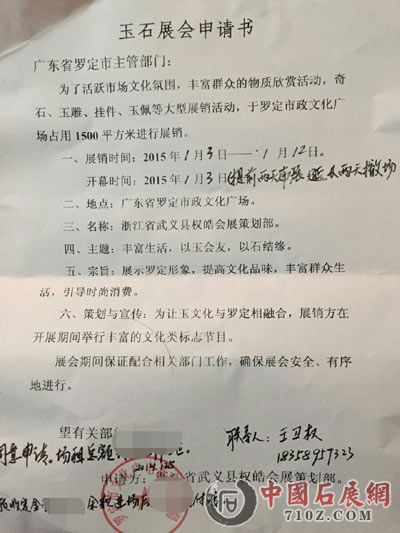 玉石展会申请书
广东省罗定市主管部门：
为了活跃市场文化氛围，丰富群众的物质欣赏活动，奇
石、玉雕、挂件、玉佩等大型展销活动，于罗定市政文化广
场占用 1500 平方米进行展销。
一、展销时间：2015 年 1 月 3 日——1 月 12 日。
开幕时间：2015 年 1 月 3 日（提前两天布展 延长两天撤场
二、地点：广东省罗定市政文化广场。
三、名称：浙江省武义县权皓会展策划部。
四、主题：丰富生活，以玉会友，以石结缘。
五、宗旨：展示罗定形象，提高文化品味，丰富群众生
活，引导时尚消费。
六、策划与宣传：为让玉文化与罗定相融合，展销方在
开展期间举行丰富的文化类标志节目。
展会期间保证配合相关部门工作，确保展会安全、有序
地进行。
望有关部
联系人：王卫权
同意申请。场租总额
18358957323
申请方：浙江省武义县权皓会展策划部。
余款进场后
中国石展網
710Z.COM